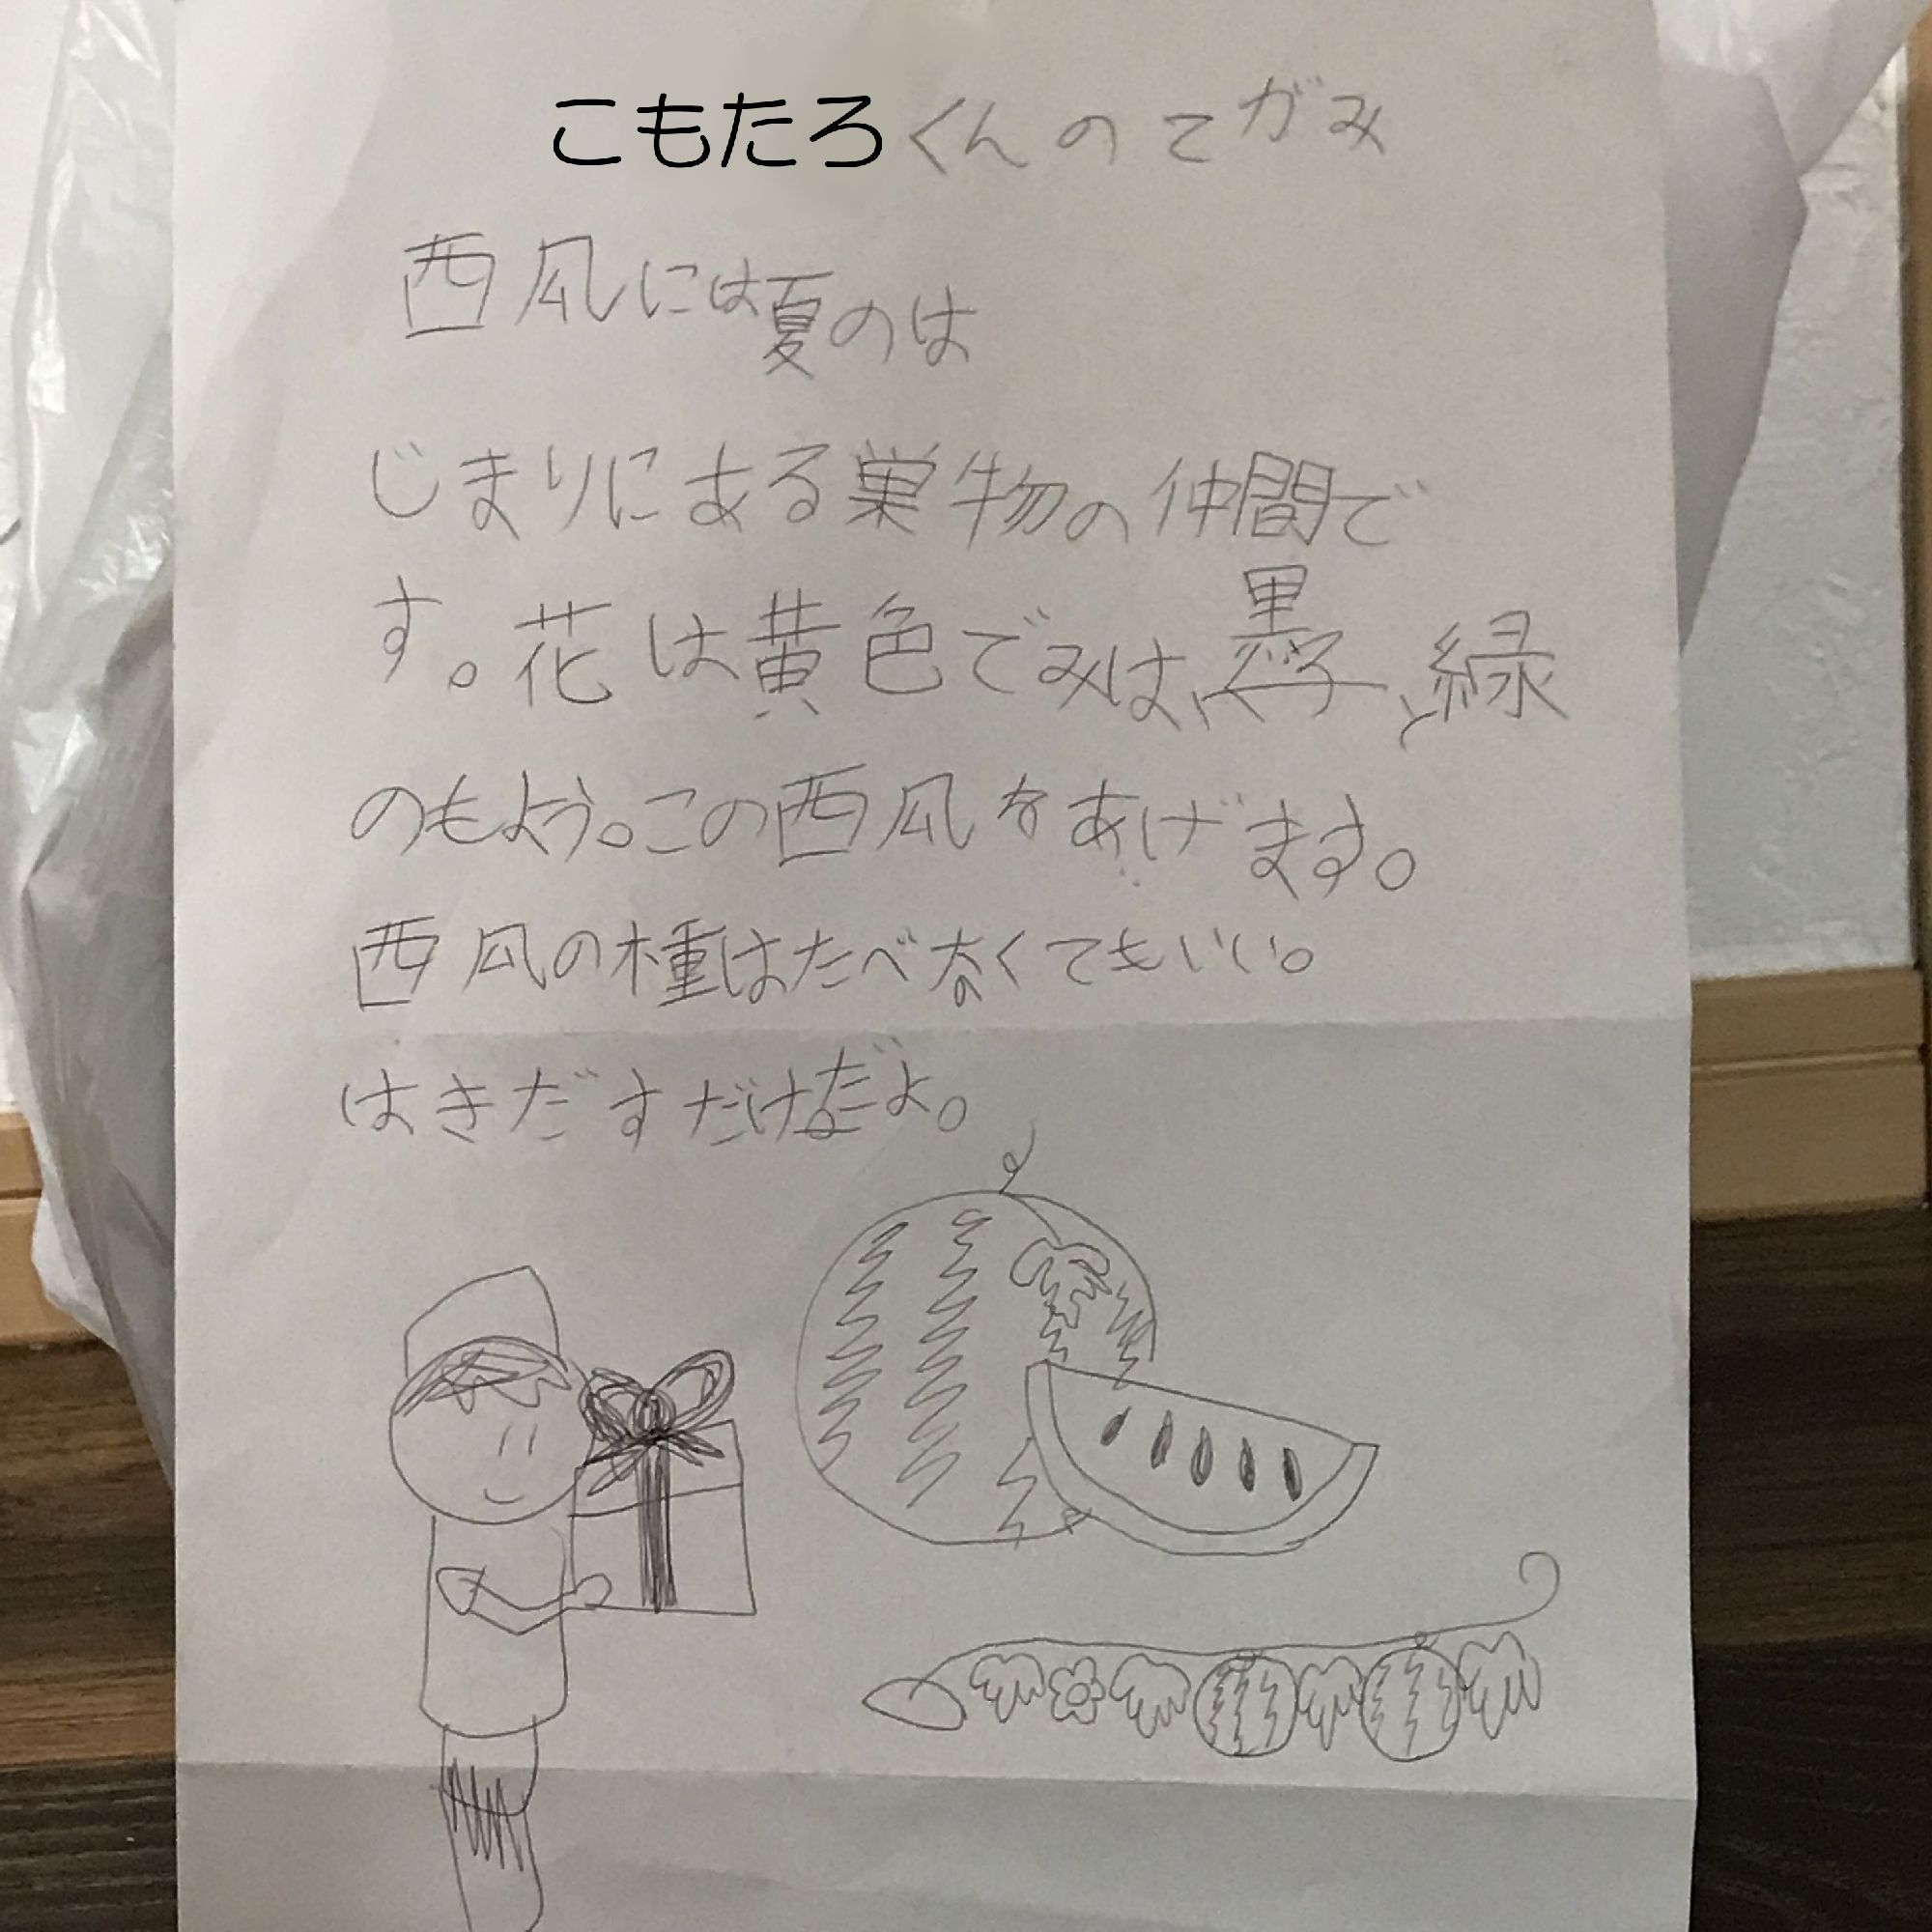 こもたろくんのてがみ
西瓜には夏のは
じまりにある巣物の仲間で
す。花は黄色でみは、黒と緑
のもよう。この西瓜をあげます。
西瓜の種はたべなくてもいい。
はきだすだけだよ。